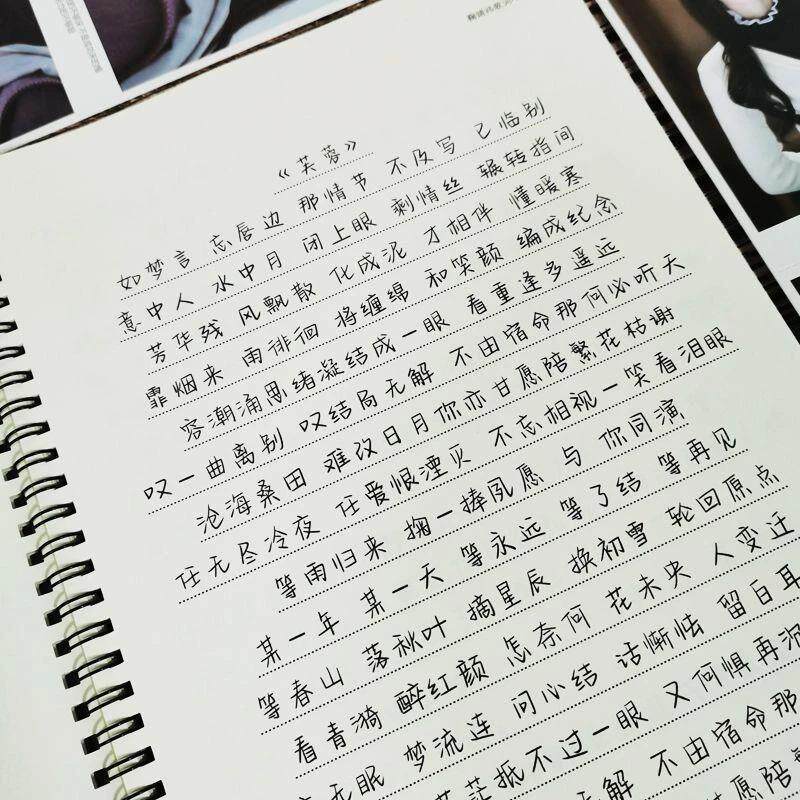 《芙蓉》
如梦言 忘唇边 那情节 不及写 已临别
意中人 水中月 闭上眼 剩情丝 辗转指间
芳华残 风飘散 化成泥 才相伴 懂暖寒
霏烟来 雨徘徊 将缠绵 和笑颜 编成纪念
容潮涌思绪凝结成一眼 看重逢多遥远
叹一曲离别 叹结局无解 不由宿命那何必听天
沧海桑田 难改日月你亦甘愿陪繁花枯谢
任无尽冷夜 任爱恨湮灭 不忘相视一笑看泪眼
等雨归来 掬一捧夙愿 与 你同演
某一年 某一天 等永远 等了结 等再见
等春山 落秋叶 摘星辰 换初雪 轮回原点
看青漪 醉红颜 怎奈何 花未央 人变迁
无眠 梦流连 问心结 话惭怯 留白耳
茫抵不过一眼 又何惧再沉
无解 不由宿命那
甘愿陪